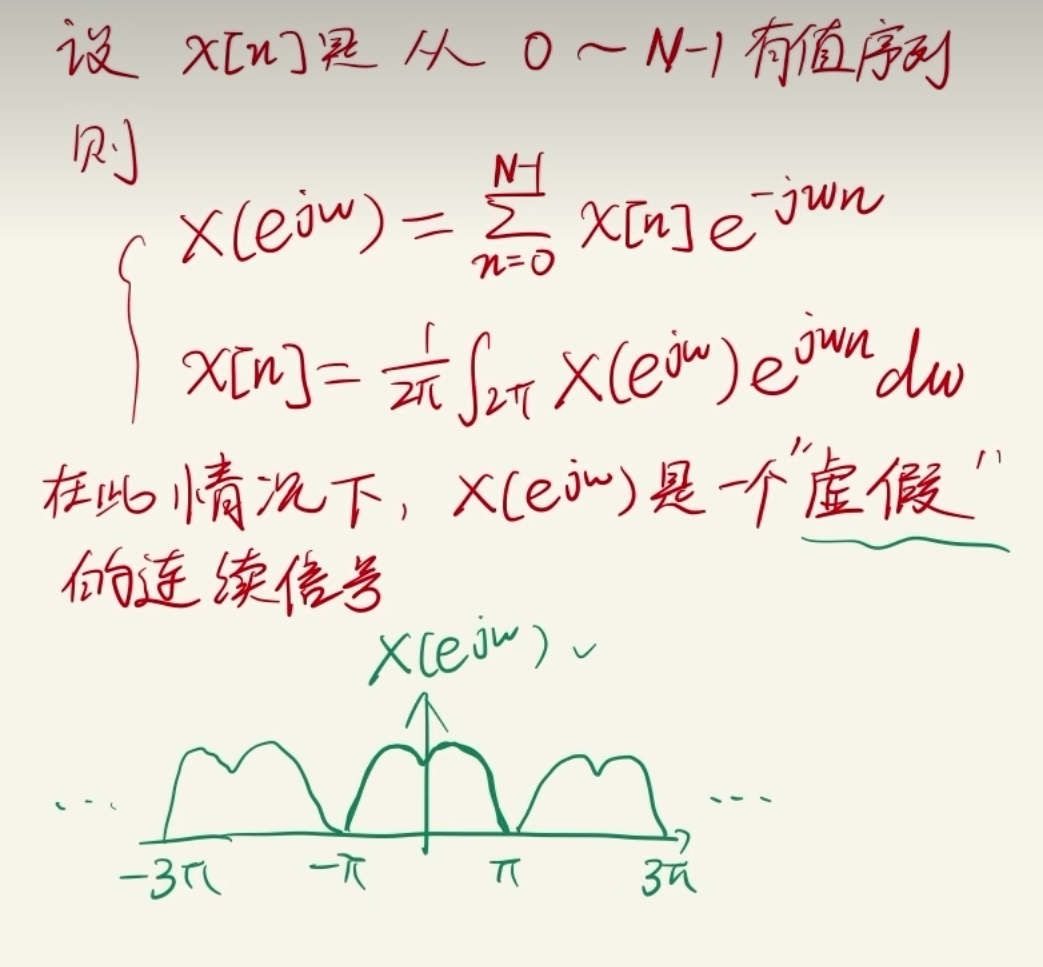 设 x[n]是 从 0 ~ N-1 有值序列
则
X(e^{jω}) = \sum_{n=0}^{N-1} x[n] e^{-jωn}
x[n] = \frac{1}{2π} \int_{2π} X(e^{jω}) e^{jωn} dω
在此情况下, X(e^{jω})是一个"虚假"
的连续信号
X(e^{jω})
... ...
-3π -π π 3π